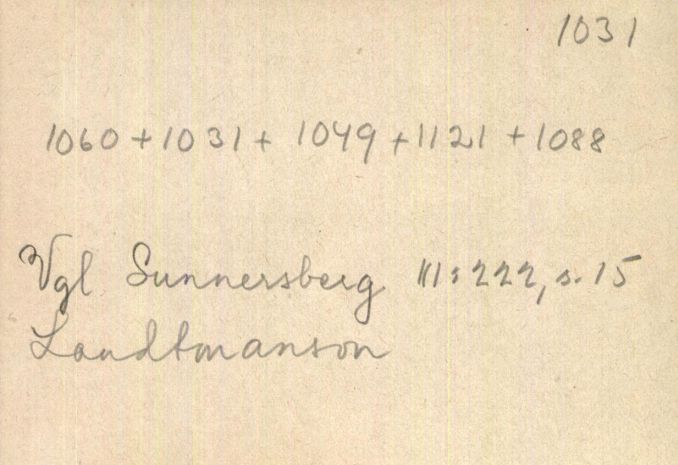 1031
1060 + 1031 + 1049 + 1121 + 1088
Vgl Sunnersberg III: 222, s. 15
Landtmanson